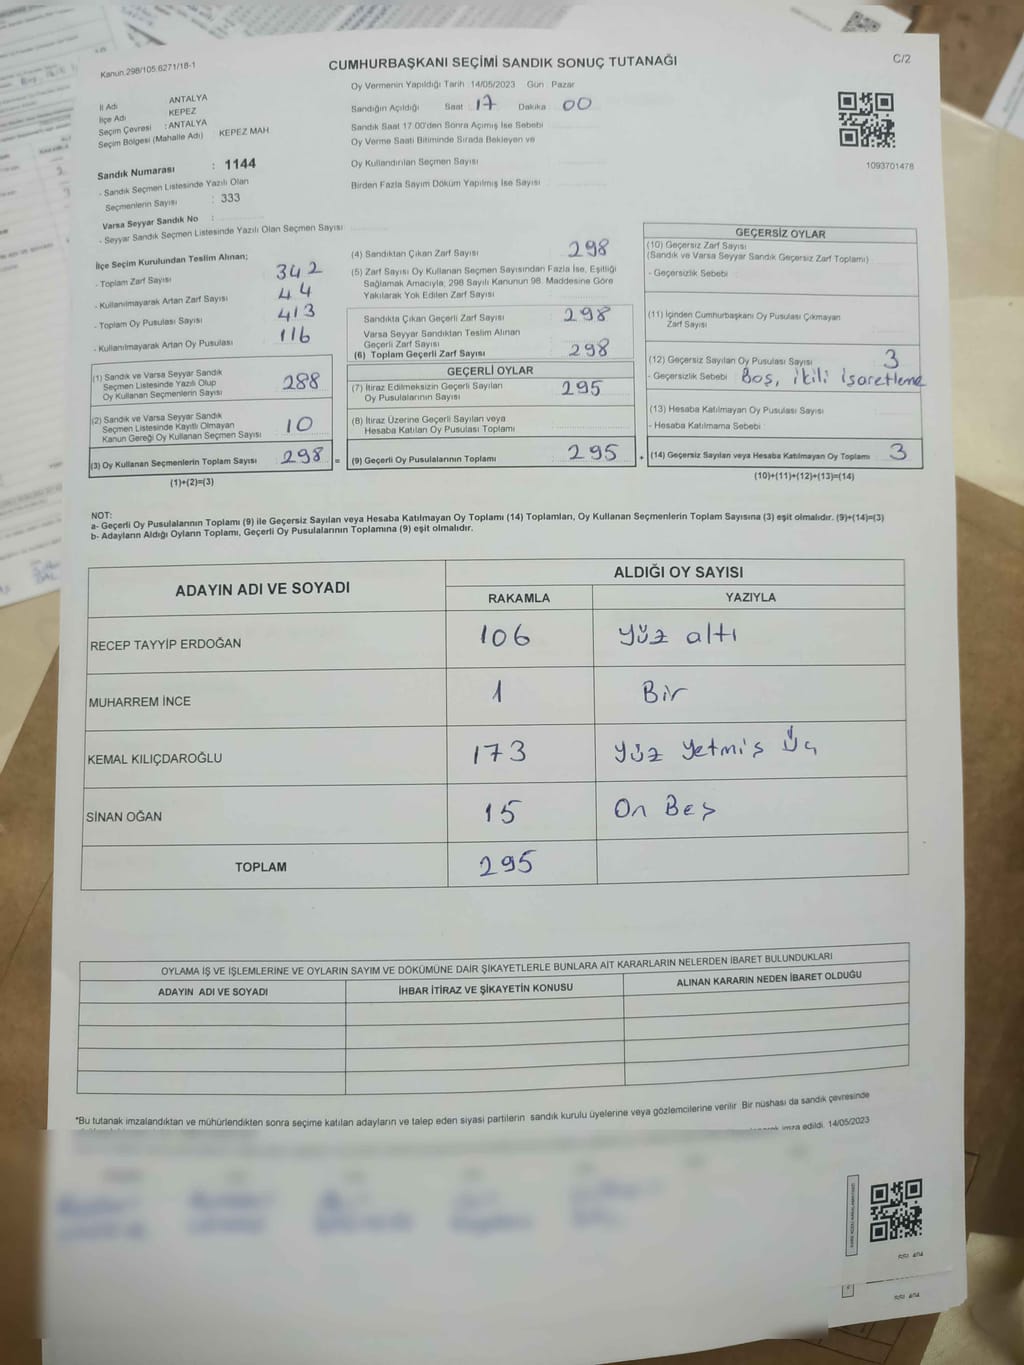 Kanun.298/105.6271/18-1
CUMHURBAŞKANI SEÇİMİ SANDIK SONUÇ TUTANAĞI
C/2
İl Adı ANTALYA
İlçe Adı KEPEZ
Seçim Çevresi : ANTALYA
Seçim Bölgesi (Mahalle Adı) KEPEZ MAH
Sandık Numarası : 1144
- Sandık Seçmen Listesinde Yazılı Olan
Seçmenlerin Sayısı : 333
Varsa Seyyar Sandık No :
- Seyyar Sandık Seçmen Listesinde Yazılı Olan Seçmen Sayısı
Oy Vermenin Yapıldığı Tarih 14/05/2023 Gün Pazar
Sandığın Açıldığı Saat 17 Dakika 00
Sandık Saat 17:00'den Sonra Açımış İse Sebebi
Oy Verme Saati Bitiminde Sırada Bekleyen ve
Oy Kullandırılan Seçmen Sayısı
Birden Fazla Sayım Döküm Yapılmış İse Sayısı
1093701478
İlçe Seçim Kurulundan Teslim Alınan;
- Toplam Zarf Sayısı 342
- Kullanılmayarak Artan Zarf Sayısı 44
- Toplam Oy Pusulası Sayısı 413
- Kullanılmayarak Artan Oy Pusulası 116
(1) Sandık ve Varsa Seyyar Sandık
Seçmen Listesinde Yazılı Olup
Oy Kullanan Seçmenlerin Sayısı 288
(2) Sandık ve Varsa Seyyar Sandık
Seçmen Listesinde Kayıtlı Olmayan
Kanun Gereği Oy Kullanan Seçmen Sayısı 10
(3) Oy Kullanan Seçmenlerin Toplam Sayısı 298 =
(1)+(2)=(3)
(4) Sandıktan Çıkan Zarf Sayısı 298
(5) Zarf Sayısı Oy Kullanan Seçmen Sayısından Fazla İse, Eşitliği
Sağlamak Amacıyla; 298 Sayılı Kanunun 98. Maddesine Göre
Yakılarak Yok Edilen Zarf Sayısı
Sandıkta Çıkan Geçerli Zarf Sayısı 298
Varsa Seyyar Sandıktan Teslim Alınan
Geçerli Zarf Sayısı
(6) Toplam Geçerli Zarf Sayısı 298
GEÇERLİ OYLAR
(7) İtiraz Edilmeksizin Geçerli Sayılan
Oy Pusulalarının Sayısı 295
(8) İtiraz Üzerine Geçerli Sayılan veya
Hesaba Katılan Oy Pusulası Toplamı
(9) Geçerli Oy Pusulalarının Toplamı 295 +
GEÇERSİZ OYLAR
(10) Geçersiz Zarf Sayısı
(Sandık ve Varsa Seyyar Sandık Geçersiz Zarf Toplamı)
- Geçersizlik Sebebi
(11) İçinden Cumhurbaşkanı Oy Pusulası Çıkmayan
Zarf Sayısı
(12) Geçersiz Sayılan Oy Pusulası Sayısı 3
- Geçersizlik Sebebi Boş, ikili işaretleme
(13) Hesaba Katılmayan Oy Pusulası Sayısı
- Hesaba Katılmama Sebebi
(14) Geçersiz Sayılan veya Hesaba Katılmayan Oy Toplamı 3
(10)+(11)+(12)+(13)=(14)
NOT:
a- Geçerli Oy Pusulalarının Toplamı (9) ile Geçersiz Sayılan veya Hesaba Katılmayan Oy Toplamı (14) Toplamları, Oy Kullanan Seçmenlerin Toplam Sayısına (3) eşit olmalıdır. (9)+(14)=(3)
b- Adayların Aldığı Oyların Toplamı, Geçerli Oy Pusulalarının Toplamına (9) eşit olmalıdır.
ADAYIN ADI VE SOYADI
ALDIĞI OY SAYISI
RAKAMLA YAZIYLA
RECEP TAYYİP ERDOĞAN 106 Yüz altı
MUHARREM İNCE 1 Bir
KEMAL KILIÇDAROĞLU 173 Yüz yetmiş Üç
SİNAN OĞAN 15 On Beş
TOPLAM 295
OYLAMA İŞ VE İŞLEMLERİNE VE OYLARIN SAYIM VE DÖKÜMÜNE DAİR ŞİKAYETLERLE BUNLARA AİT KARARLARIN NELERDEN İBARET BULUNDUKLARI
ADAYIN ADI VE SOYADI İHBAR İTİRAZ VE ŞİKAYETİN KONUSU ALINAN KARARIN NEDEN İBARET OLDUĞU
*Bu tutanak imzalandıktan ve mühürlendikten sonra seçime katılan adayların ve talep eden siyasi partilerin sandık kurulu üyelerine veya gözlemcilerine verilir Bir nüshası da sandık çevresinde
imza edildi. 14/05/2023